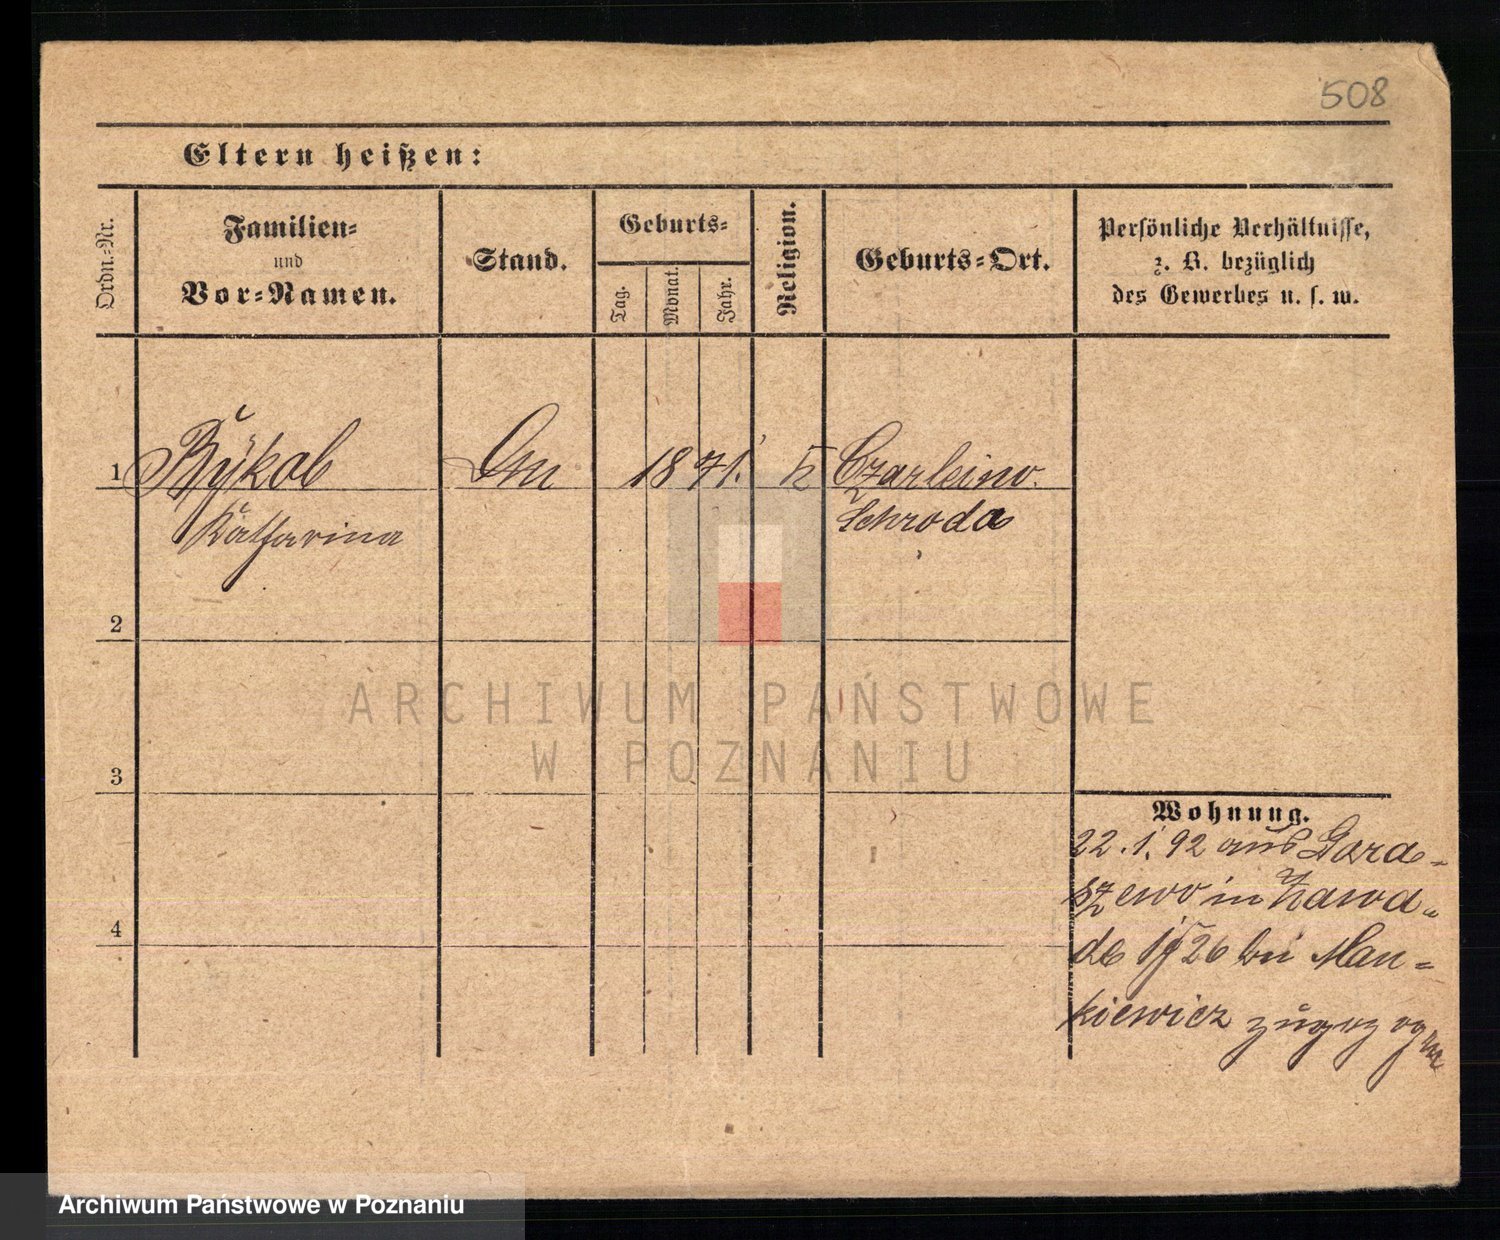 508
Eltern heißen:
Ordn.-Nr.
Familien-
und
Vor-Namen.
Stand.
Geburts-
Tag.
Monat.
Jahr.
Religion.
Geburts-Ort.
Persönliche Verhältnisse,
z. B. bezüglich
des Gewerbes u. s. w.
1 Bykob 1871. k Czarleino
Katharina Schroda
2
3
4
Wohnung.
22.1.92 aus Gora-
szewo in Zawa-
de 1/26 bei Man-
kiewicz zugezogen
ARCHIWUM PAŃSTWOWE
W POZNANIU
Archiwum Państwowe w Poznaniu